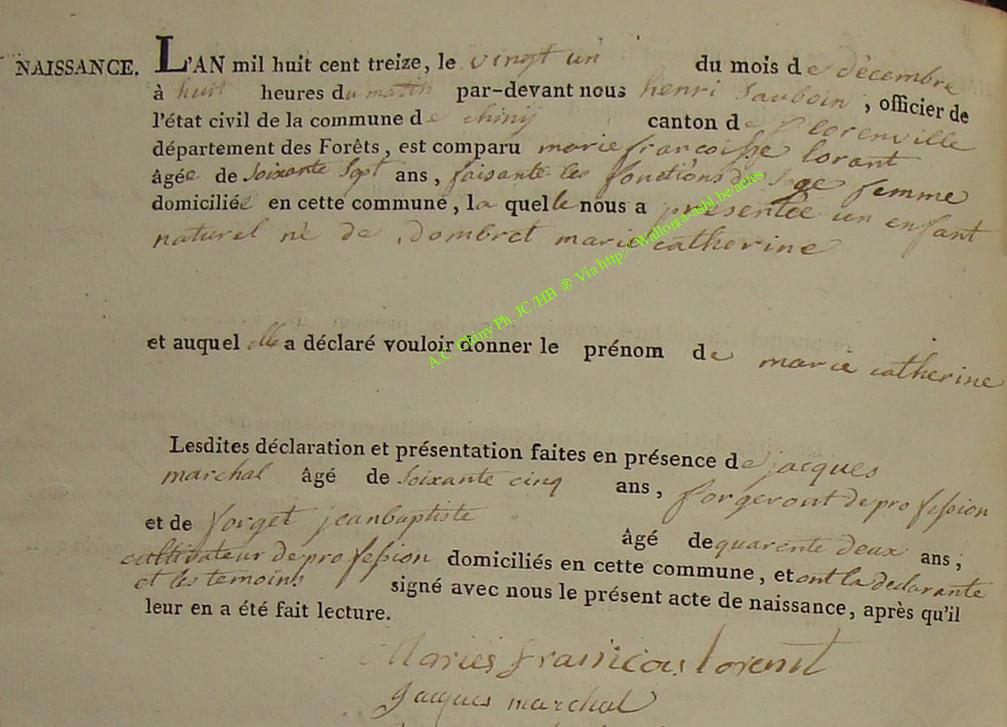 NAISSANCE. L'AN mil huit cent treize, le vingt un du mois de décembre
à huit heures du matin par-devant nous henri Sauboin, officier de
l'état civil de la commune de chinij canton de florenville
département des Forêts, est comparu marie francoisse lorant
âgée de Soixante Sept ans, faisante les fonctions de sage femme
domiciliée en cette commune, la quelle nous a présentée un enfant
naturel né de Dombret marie catherine
et auquel elle a déclaré vouloir donner le prénom de marie catherine
A.C. Chiny Ph. JC/HB ® Via http://wallonia-asbl.be/actes
Lesdites déclaration et présentation faites en présence de jacques
marchal âgé de Soixante cinq ans, forgeront de profession
et de forget jeanbaptiste âgé de quarente deux ans,
cultivateur de profession domiciliés en cette commune, et ont la declarante
et les temoins signé avec nous le présent acte de naissance, après qu'il
leur en a été fait lecture.
Maries francois lorent
jacques marchal